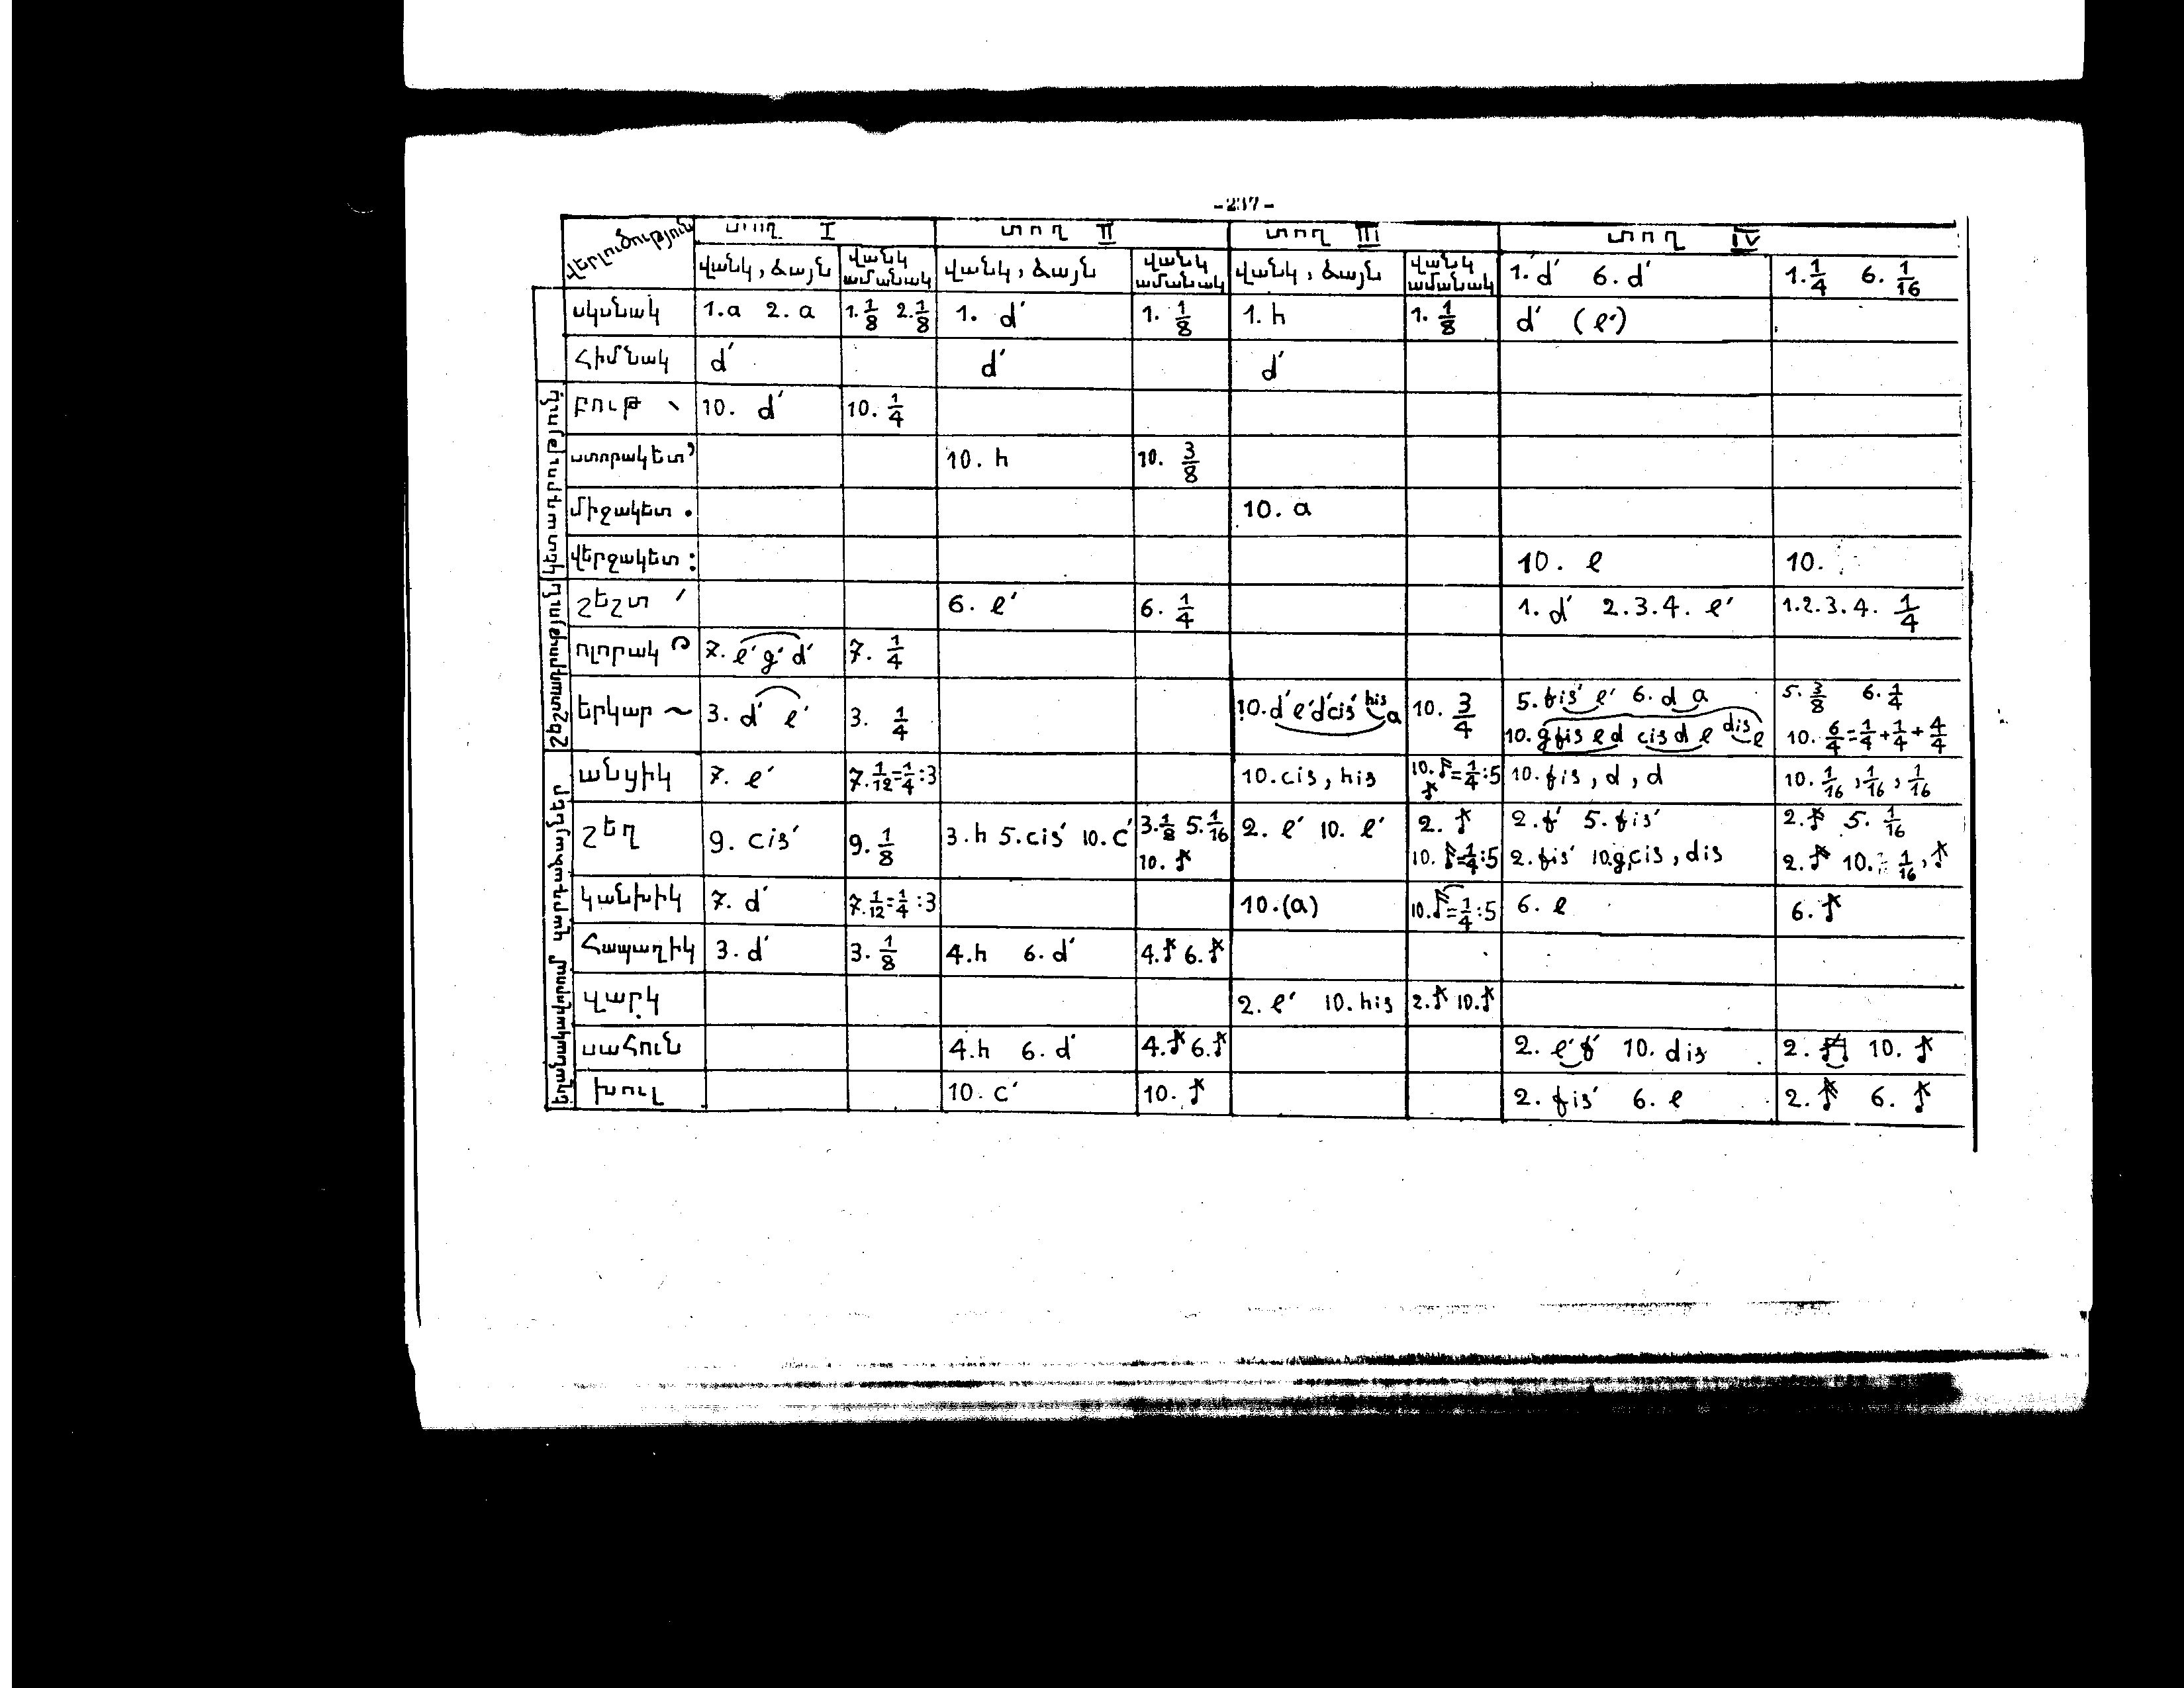 -237-
վերլուծություն տող I տող II տող III տող IV
վանկ, ձայն վանկ ամանակ վանկ, ձայն վանկ ամանակ վանկ, ձայն վանկ ամանակ 1. d′ 6. d′ 1. 1/4 6. 1/16
սկսնակ 1. a 2. a 1. 1/8 2. 1/8 1. d′ 1. 1/8 1. h 1. 1/8 d′ (e′)
Հիմնակ d′ d′ d′
բութ ՝ 10. d′ 10. 1/4
ստորակետ ’ 10. h 10. 3/8
միջակետ . 10. a
վերջակետ : 10. e 10.
շեշտ ′ 6. e′ 6. 1/4 1. d′ 2.3.4. e′ 1.2.3.4. 1/4
ոլորակ 7. e′ g′ d′ 7. 1/4
երկար ~ 3. d′ e′ 3. 1/4 10. d′ e′ d′ cis′ his a 10. 3/4 5. fis′ e′ 6. d a 5. 3/8 6. 1/4
10. g fis e d cis d e dis e 10. 6/4 = 1/4 + 1/4 + 4/4
անցիկ 7. e′ 7. 1/12 = 1/4 : 3 10. cis, his 10. ♪ = 1/4 : 5 10. fis, d, d 10. 1/16, 1/16, 1/16
շեղ 9. cis′ 9. 1/8 3. h 5. cis′ 10. c′ 3. 1/8 5. 1/16 2. e′ 10. e′ 2. ♪ 2. f′ 5. fis′ 2. ♪ 5. 1/16
10. ♪ 10. ♪ = 1/4 : 5 2. fis′ 10. g, cis, dis 2. ♪ 10. 1/16, ♪
կանխիկ 7. d′ 7. 1/12 = 1/4 : 3 10. (a) 10. ♪ = 1/4 : 5 6. e 6. ♪
Հապաղիկ 3. d′ 3. 1/8 4. h 6. d′ 4. ♪ 6. ♪
վարկ 2. e′ 10. his 2. ♪ 10. ♪
սահուն 4. h 6. d′ 4. ♪ 6. ♪ 2. e′ f′ 10. dis 2. ♫ 10. ♪
խուլ 10. c′ 10. ♪ 2. fis′ 6. e 2. ♪ 6. ♪